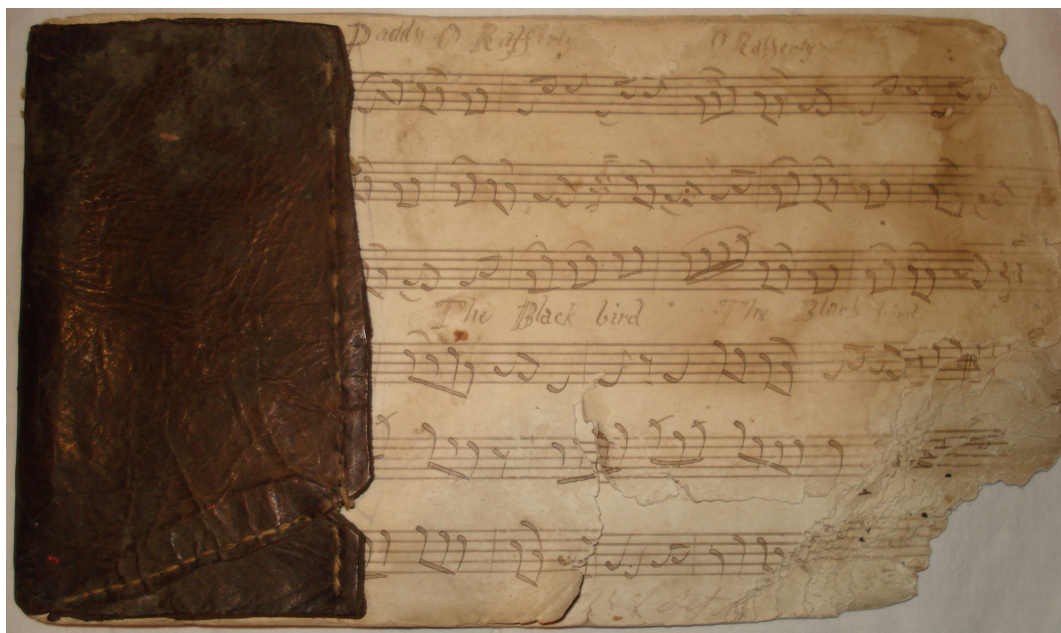 Paddy O Rafferty O Rafferty
The Black bird The Black bird